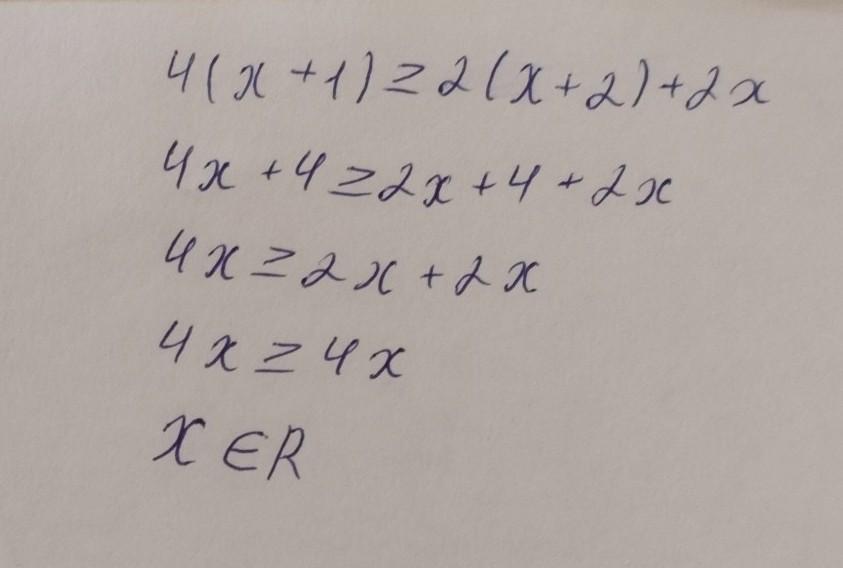 4(x+1)≥2(x+2)+2x
4x+4≥2x+4+2x
4x≥2x+2x
4x≥4x
x∈R